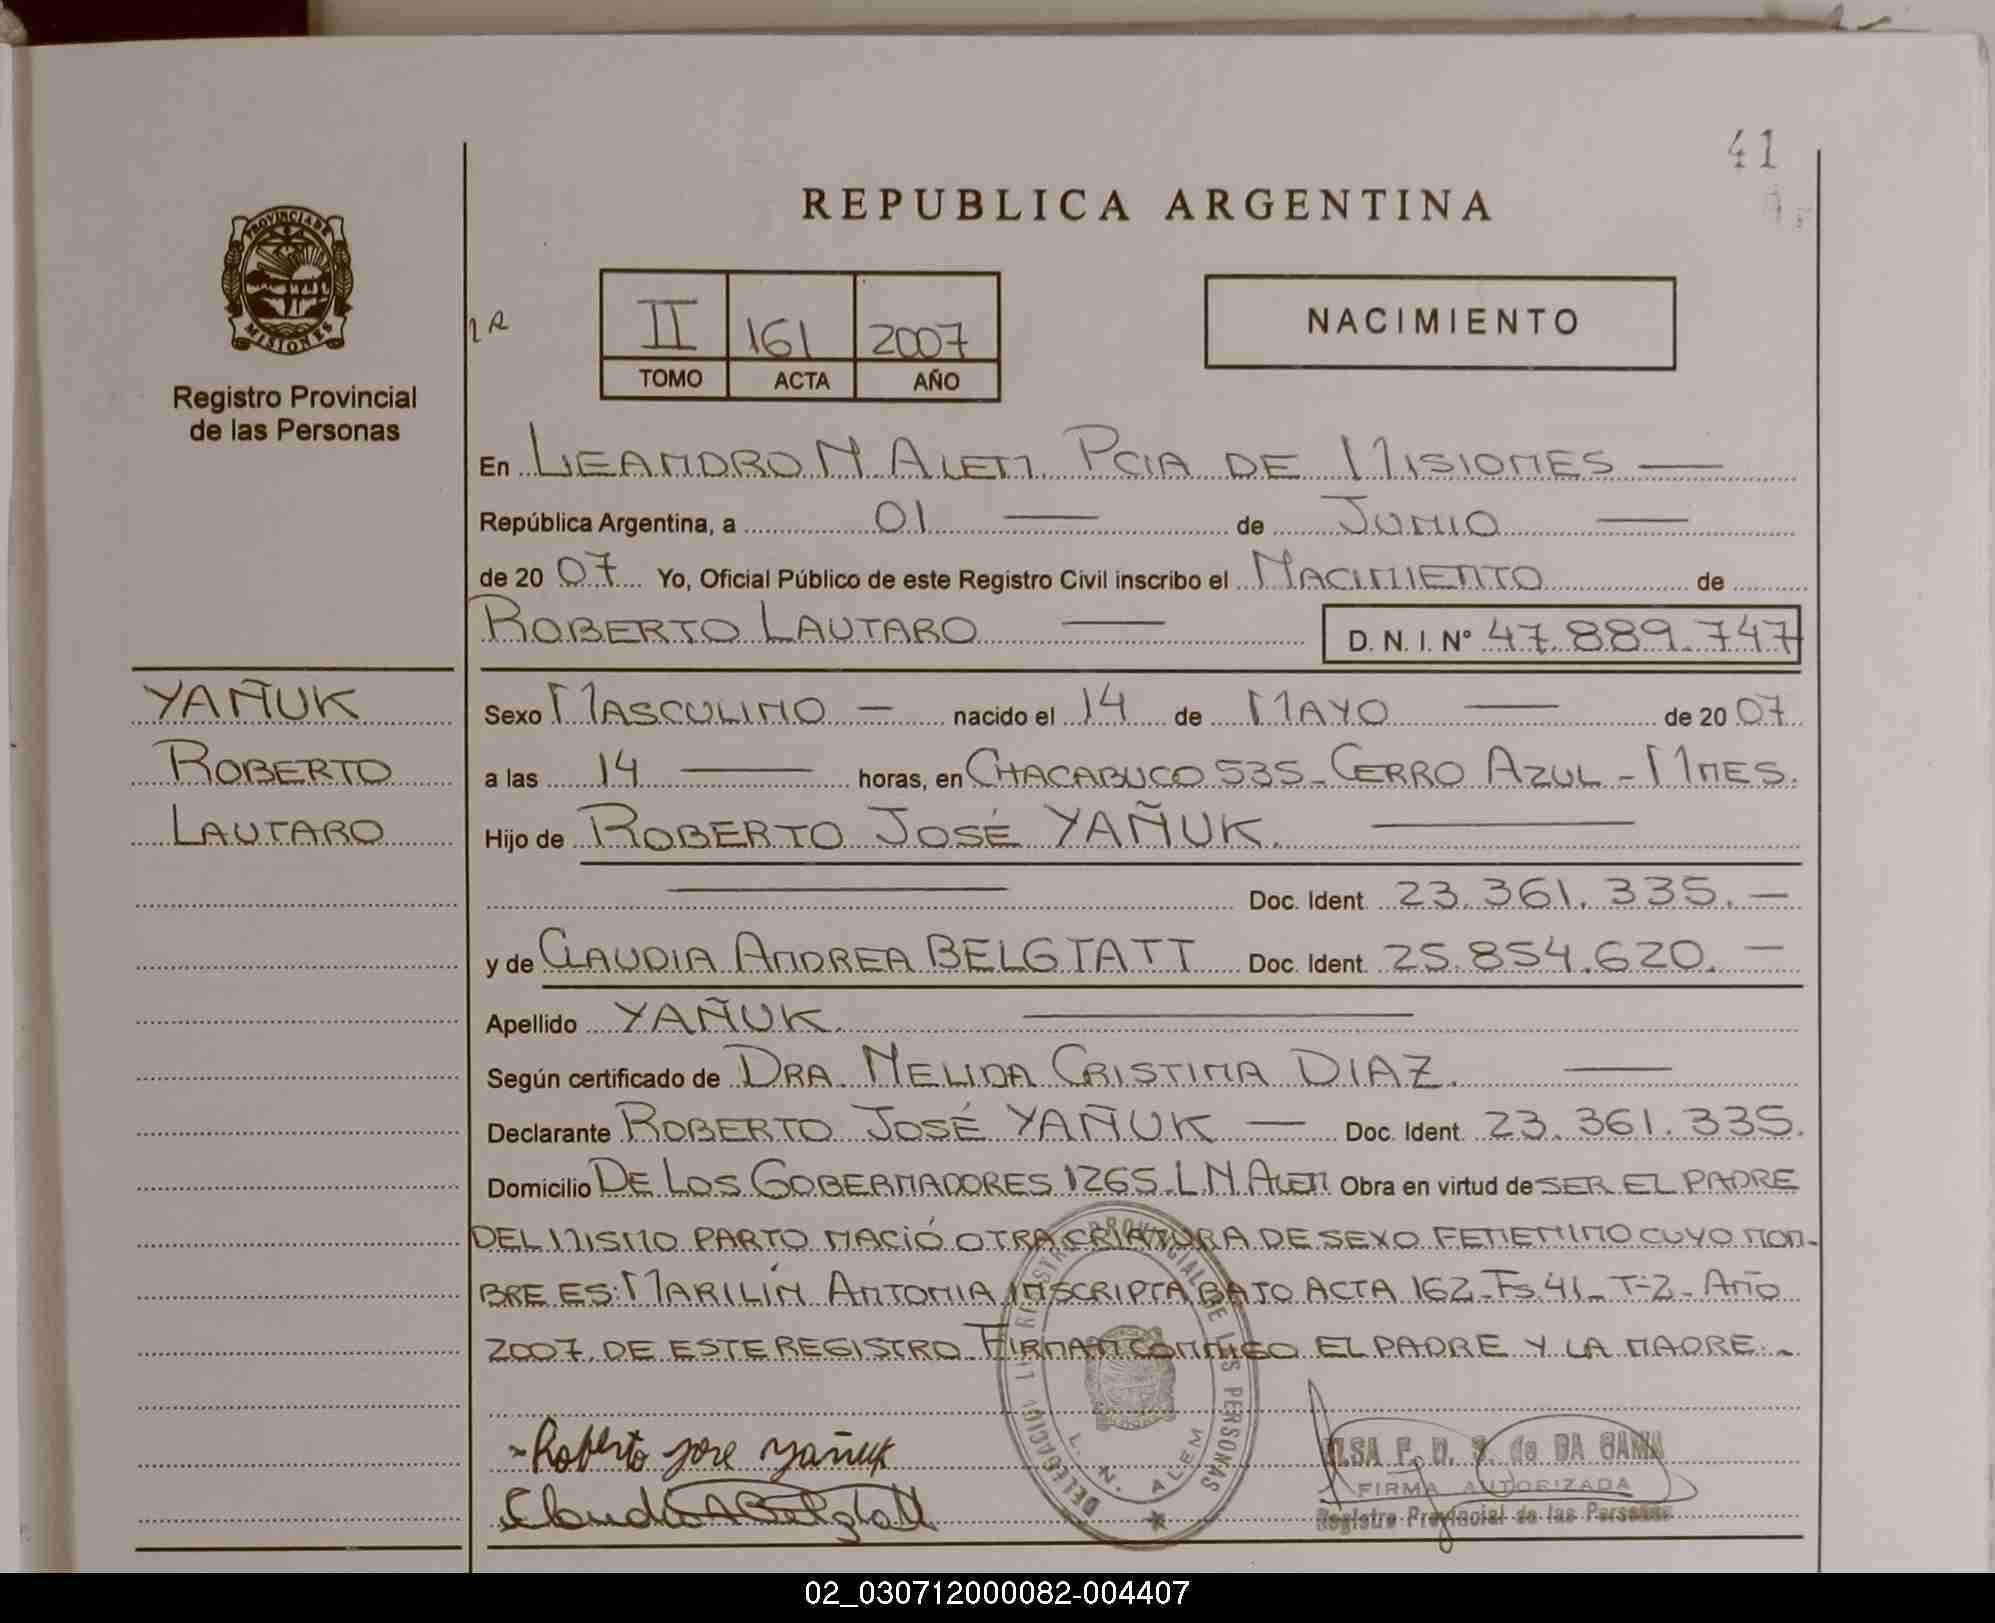 41
REPUBLICA ARGENTINA
PROVINCIA DE
MISIONES
Registro Provincial
de las Personas
II 161 2007
TOMO ACTA AÑO
NACIMIENTO
En LEANDRO N ALEM PCIA DE MISIONES
República Argentina, a 01 de JUNIO
de 2007 Yo, Oficial Público de este Registro Civil inscribo el NACIMIENTO de
ROBERTO LAUTARO D. N. I. Nº 47.889.747
YAÑUK
ROBERTO
LAUTARO
Sexo MASCULINO - nacido el 14 de MAYO de 2007
a las 14 horas, en CHACABUCO 535_ CERRO AZUL - MNES.
Hijo de ROBERTO JOSÉ YAÑUK.
Doc. Ident. 23.361.335.-
y de CLAUDIA ANDREA BELGTATT Doc. Ident. 25.854.620.-
Apellido YAÑUK.
Según certificado de DRA. NELIDA CRISTINA DIAZ.
Declarante ROBERTO JOSÉ YAÑUK - Doc. Ident. 23.361.335.
Domicilio DE LOS GOBERNADORES 1265_L N ALEM Obra en virtud de SER EL PADRE
DEL MISMO PARTO NACIÓ OTRA CRIATURA DE SEXO FEMENINO CUYO NOM-
BRE ES: MARILÍN ANTONIA INSCRIPTA BAJO ACTA 162_Fs.41_T-2_Año
2007 DE ESTE REGISTRO. FIRMAN CONMIGO EL PADRE Y LA MADRE.-
Roberto jose yañuk
Claudia A Belgtatt
REGISTRO PROVINCIAL DE LAS PERSONAS
DELEGACION
L. N. ALEM
ELSA F. D. de DA GAMA
FIRMA AUTORIZADA
Registro Provincial de las Personas
02_030712000082-004407